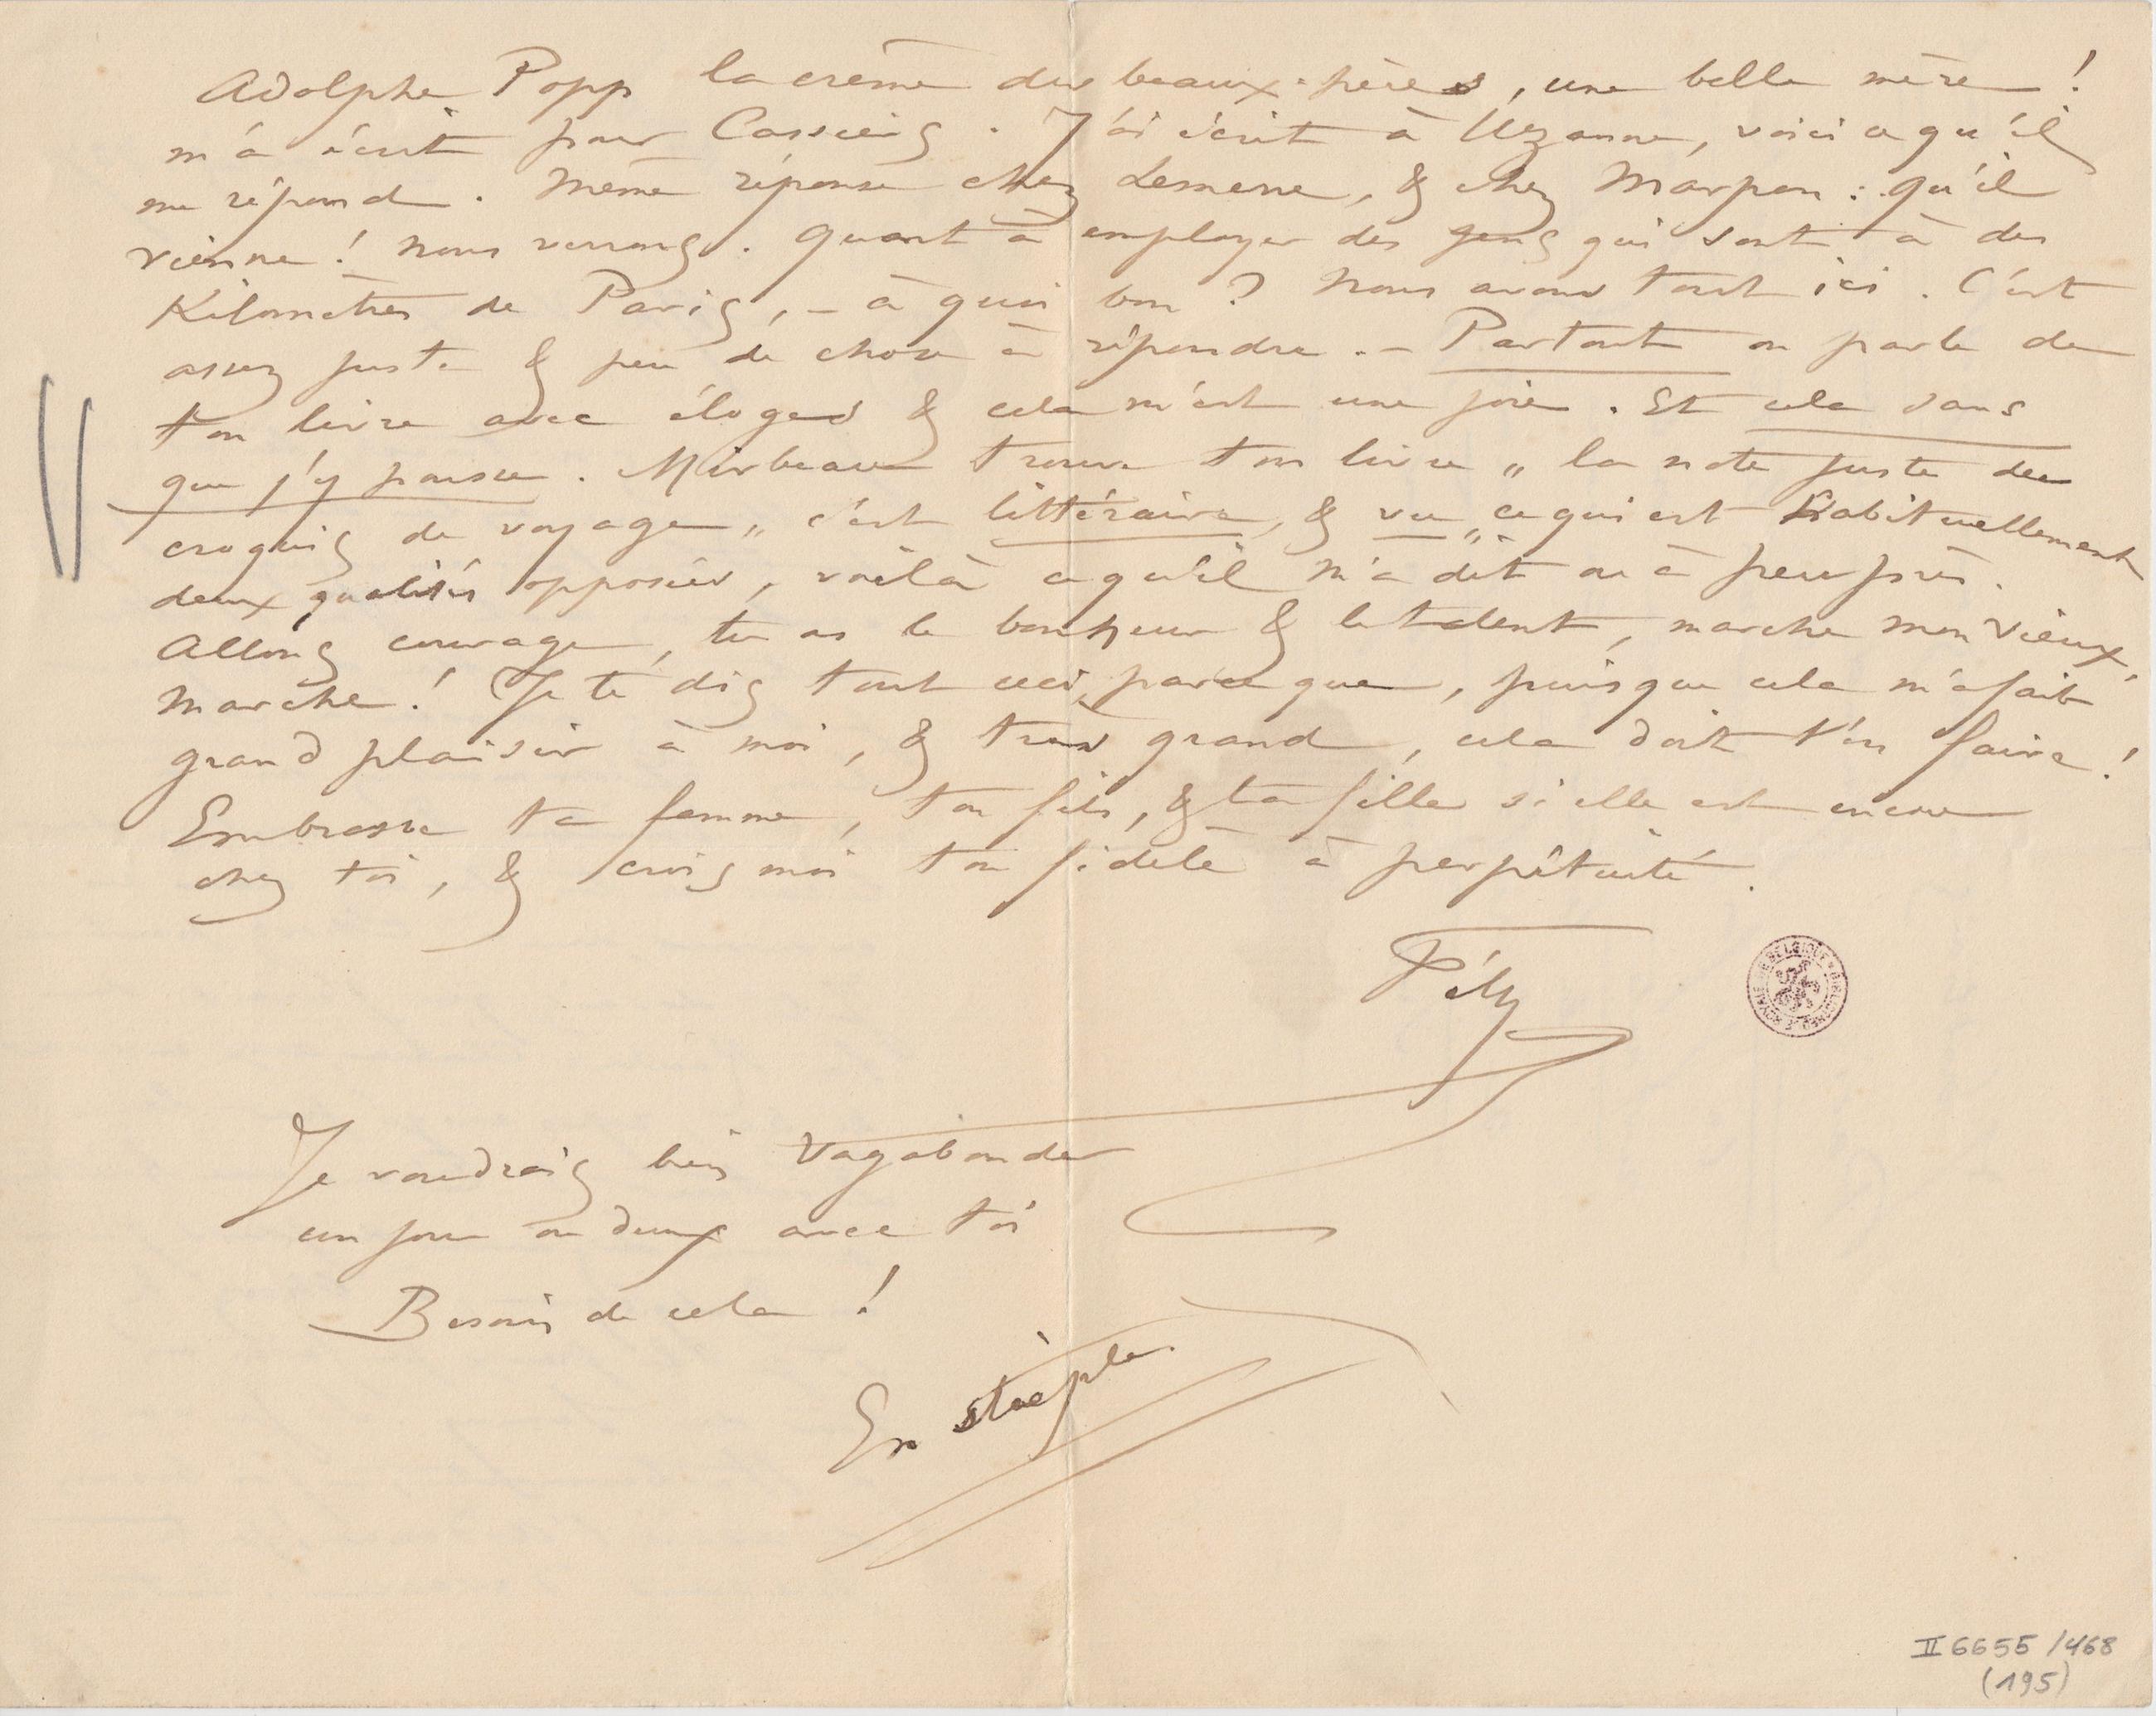 Adolphe Popp la crème des beaux-pères, une belle mère !
m'a écrit pour Cassiers. J'ai écrit à Uzanne, voici ce qu'il
me répond. Même réponse chez Lemerre, & chez Marpon : qu'il
vienne ! nous verrons. Quant à employer des gens qui sont à des
Kilomètres de Paris, – à quoi bon ? Nous avons tout ici. C'est
assez juste & peu de chose à répondre. – Partout on parle de
ton livre avec éloges & cela m'est une joie. Et cela sans
que j'y pousse. Mirbeau trouve ton livre „ la note juste du
croquis de voyage „ c'est littéraire, & vu „ ce qui est habituellement
deux qualités opposées, voilà ce qu'il m'a dit ou à peu près.
Allons courage, tu as le bonheur & le talent, marche mon vieux,
marche ! Je te dis tout ceci, parce que, puisque cela m'a fait
grand plaisir à moi, & très grand, cela doit t'en faire !
Embrasse ta femme, ton fils, & ta fille si elle est encore
chez toi, & crois moi ton fidèle à perpétuité.
Fély
Je voudrais bien Vagabonder
un jour ou deux avec toi
Besoin de cela !
En
BIBLIOTHÈQUE ROYALE DE BELGIQUE
II 6655 /468
(195)